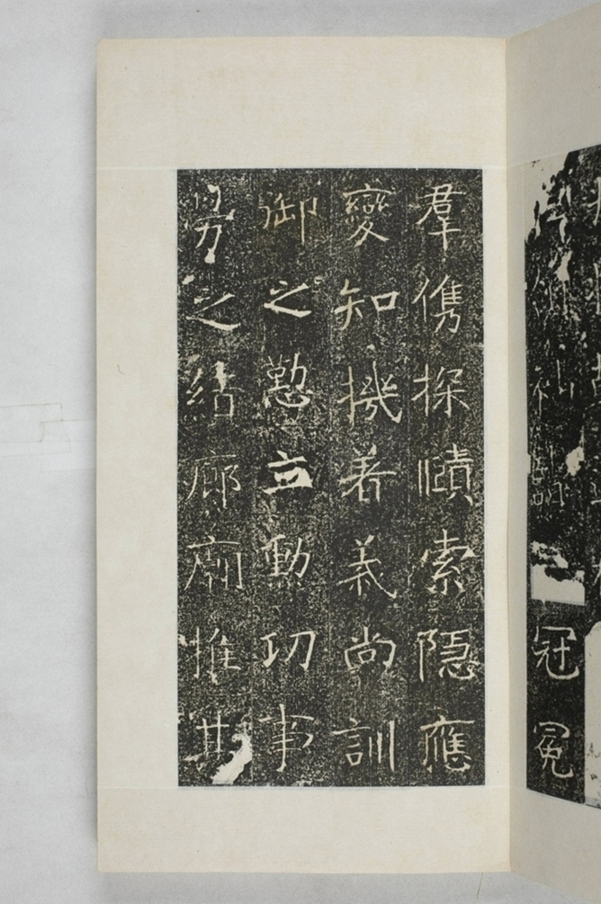 冠冕
羣儁探賾索隱應
變知機著義尚訓
御之懃立勳功事
勞之結廊廟惟其